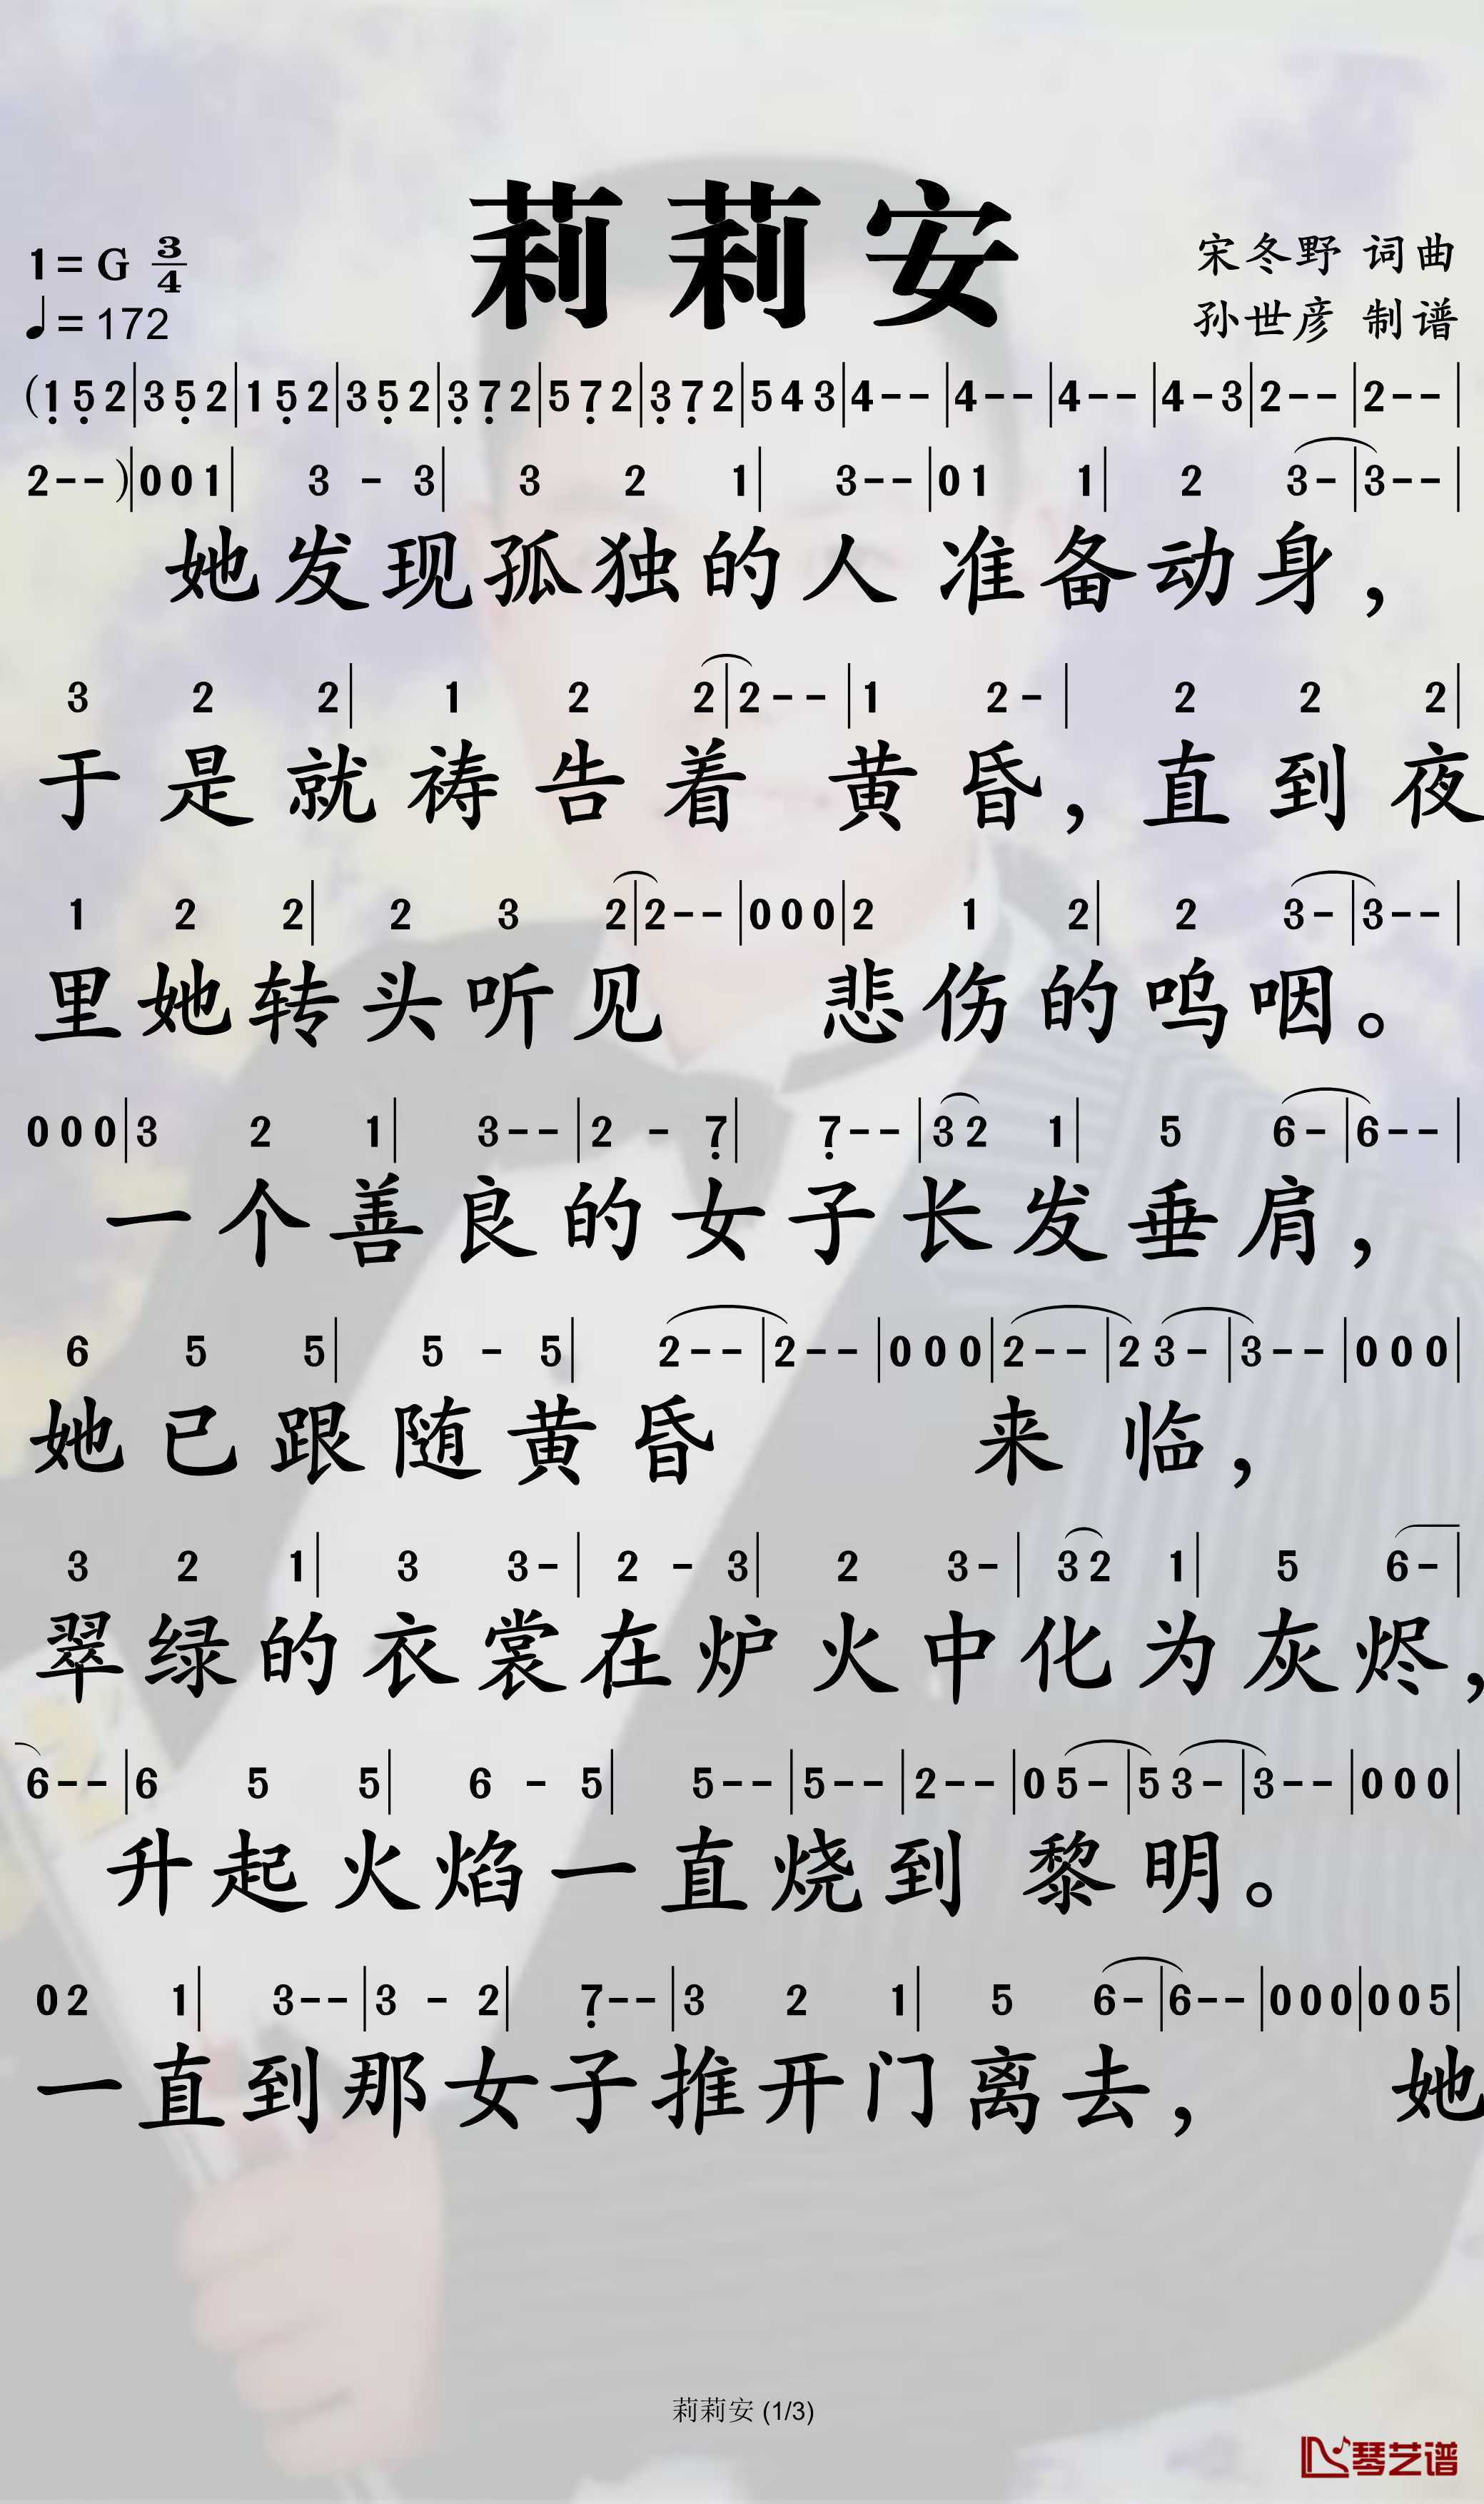 莉莉安
1=G 3/4
♩=172
宋冬野 词曲
孙世彦 制谱
(1 5 2|3 5 2|1 5 2|3 5 2|3 7 2|5 7 2|3 7 2|5 4 3|4--|4--|4--|4-3|2--|2--|
2--)|0 0 1|3 - 3|3 2 1|3--|0 1 1|2 3-|3--|
她发现孤独的人 准备动身，
3 2 2|1 2 2|2--|1 2-|2 2 2|
于是就祷告着 黄昏，直到夜
1 2 2|2 3 2|2--|0 0 0|2 1 2|2 3-|3--|
里她转头听见 悲伤的呜咽。
0 0 0|3 2 1|3--|2 - 7|7--|3 2 1|5 6-|6--|
一个善良的女子长发垂肩，
6 5 5|5 - 5|2--|2--|0 0 0|2--|2 3-|3--|0 0 0|
她已跟随黄昏 来临，
3 2 1|3 3-|2 - 3|2 3-|3 2 1|5 6-|
翠绿的衣裳在炉火中化为灰烬，
6--|6 5 5|6 - 5|5--|5--|2--|0 5-|5 3-|3--|0 0 0|
升起火焰一直烧到 黎明。
0 2 1|3--|3 - 2|7--|3 2 1|5 6-|6--|0 0 0|0 0 5|
一直到那女子推开门离去， 她
莉莉安 (1/3)
琴艺谱